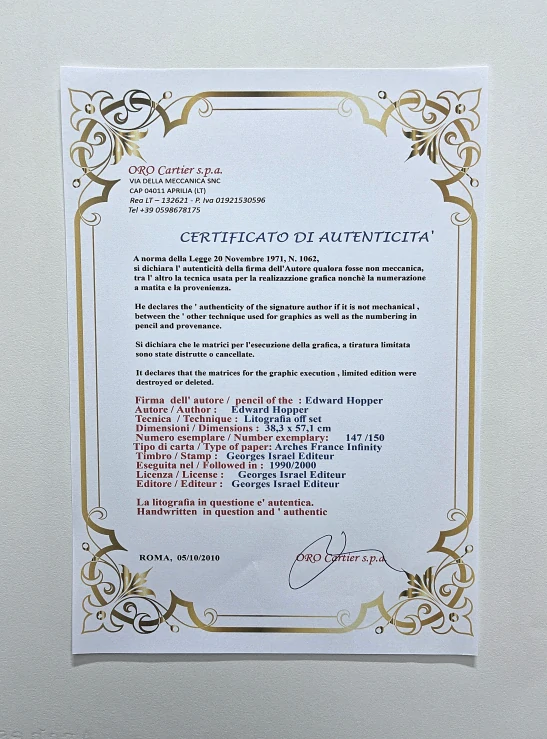 ORO Cartier s.p.a.
VIA DELLA MECCANICA SNC
CAP 04011 APRILIA (LT)
Rea LT – 132621 - P. Iva 01921530596
Tel +39 0598678175
CERTIFICATO DI AUTENTICITA'
A norma della Legge 20 Novembre 1971, N. 1062,
si dichiara l' autenticità della firma dell'Autore qualora fosse non meccanica,
tra l' altro la tecnica usata per la realizazzione grafica nonchè la numerazione
a matita e la provenienza.
He declares the ' authenticity of the signature author if it is not mechanical ,
between the ' other technique used for graphics as well as the numbering in
pencil and provenance.
Si dichiara che le matrici per l'esecuzione della grafica, a tiratura limitata
sono state distrutte o cancellate.
It declares that the matrices for the graphic execution , limited edition were
destroyed or deleted.
Firma dell' autore / pencil of the : Edward Hopper
Autore / Author : Edward Hopper
Tecnica / Technique : Litografia off set
Dimensioni / Dimensions : 38,3 x 57,1 cm
Numero esemplare / Number exemplary: 147 /150
Tipo di carta / Type of paper: Arches France Infinity
Timbro / Stamp : Georges Israel Editeur
Eseguita nel / Followed in : 1990/2000
Licenza / License : Georges Israel Editeur
Editore / Editeur : Georges Israel Editeur
La litografia in questione e' autentica.
Handwritten in question and ' authentic
ROMA, 05/10/2010
ORO Cartier s.p.a.